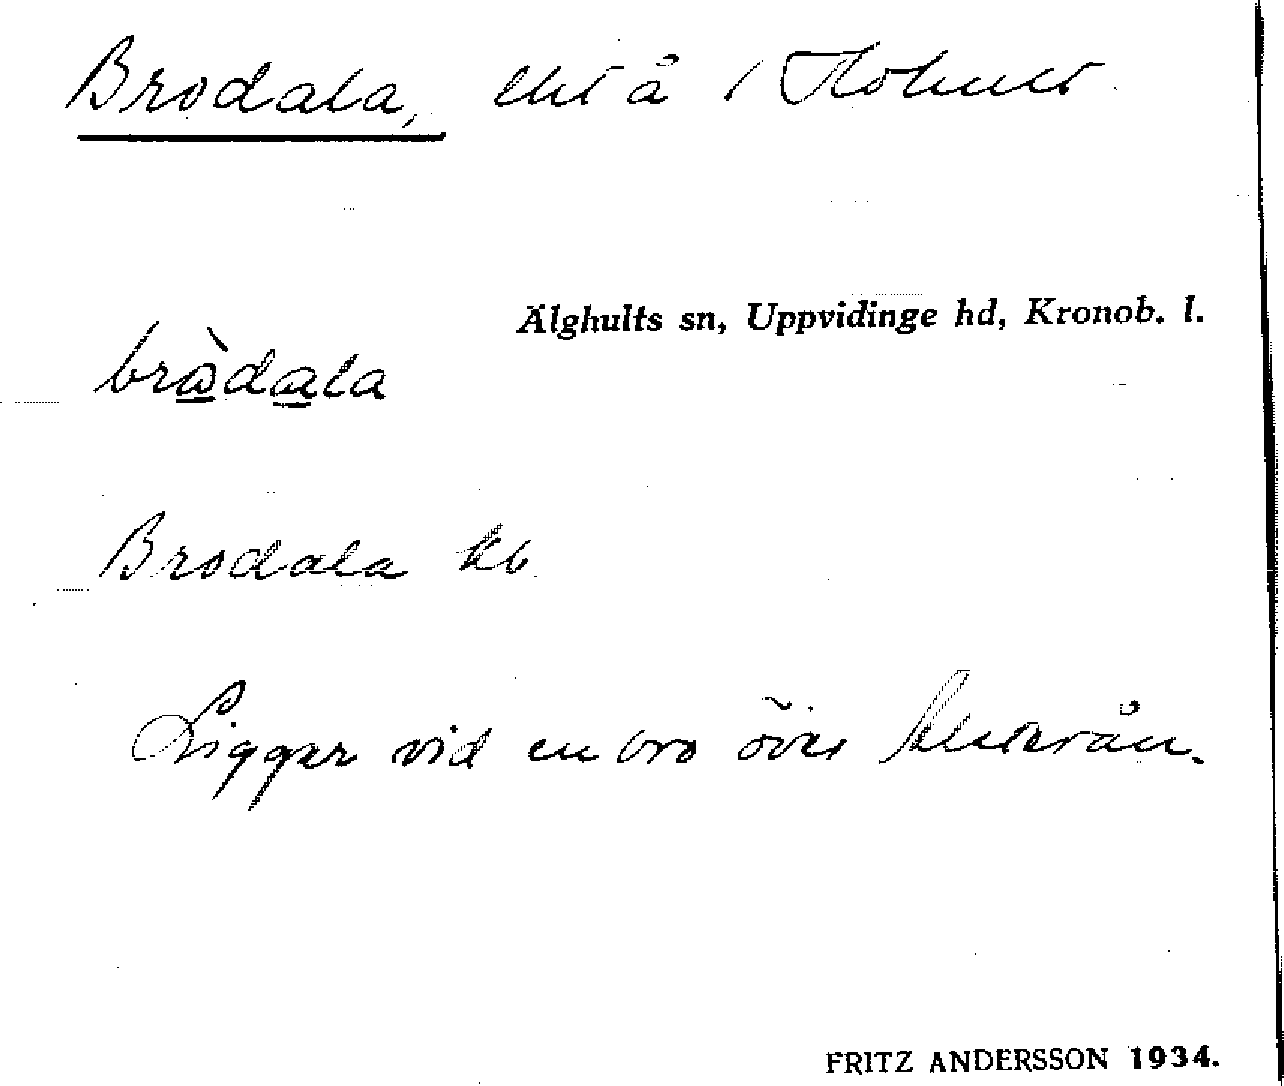 Brodala, lht å 1 Flohult
Älghults sn, Uppvidinge hd, Kronob. l.
bròdala
Brodala kb
Ligger vid en bro över
FRITZ ANDERSSON 1934.